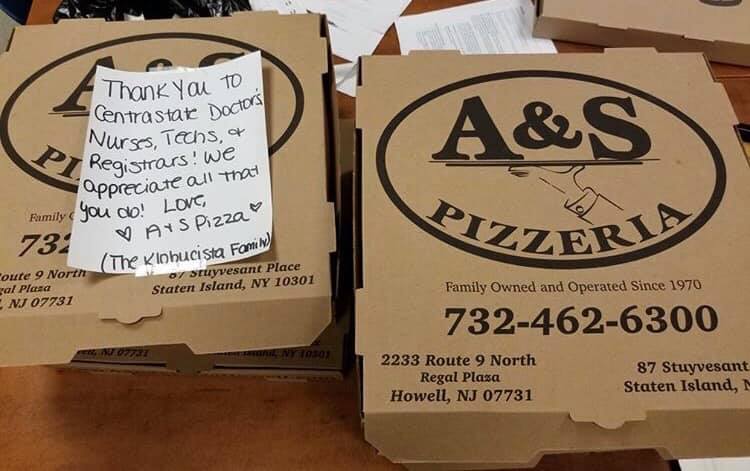 A
PI
Family
732
Route 9 North
Regal Plaza
, NJ 07731
87 Stuyvesant Place
Staten Island, NY 10301
Thank You To
Centrastate Doctors,
Nurses, Techs, +
Registrars! We
appreciate all that
you do! Love,
♡ A+S Pizza ♡
(The Klobucista Family)
NJ 07731
Island, NY 10301
A&S
PIZZERIA
Family Owned and Operated Since 1970
732-462-6300
2233 Route 9 North
Regal Plaza
Howell, NJ 07731
87 Stuyvesant
Staten Island, N